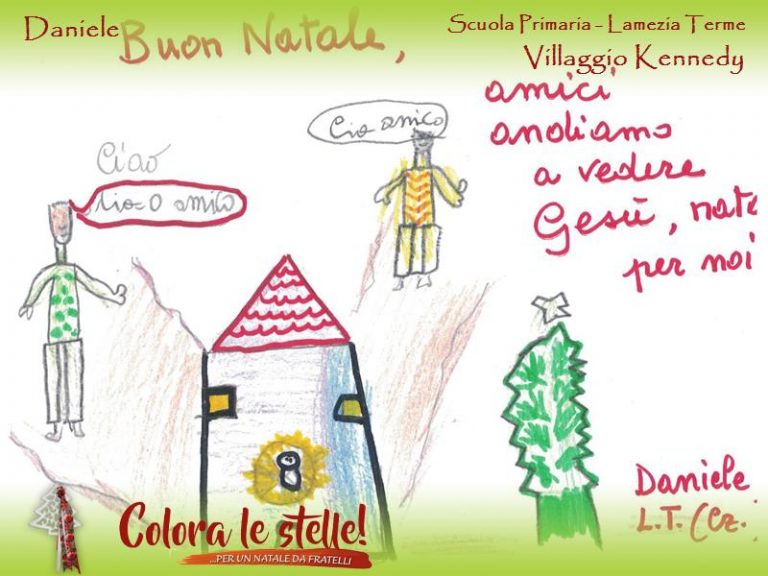 Daniele
Buon Natale,
Scuola Primaria - Lamezia Terme
Villaggio Kennedy
amici
andiamo
a vedere
Gesù, nato
per noi
Cio amico
Ciao
Ciao amico
Daniele
L.T. (Cz.
Colora le stelle!
...PER UN NATALE DA FRATELLI